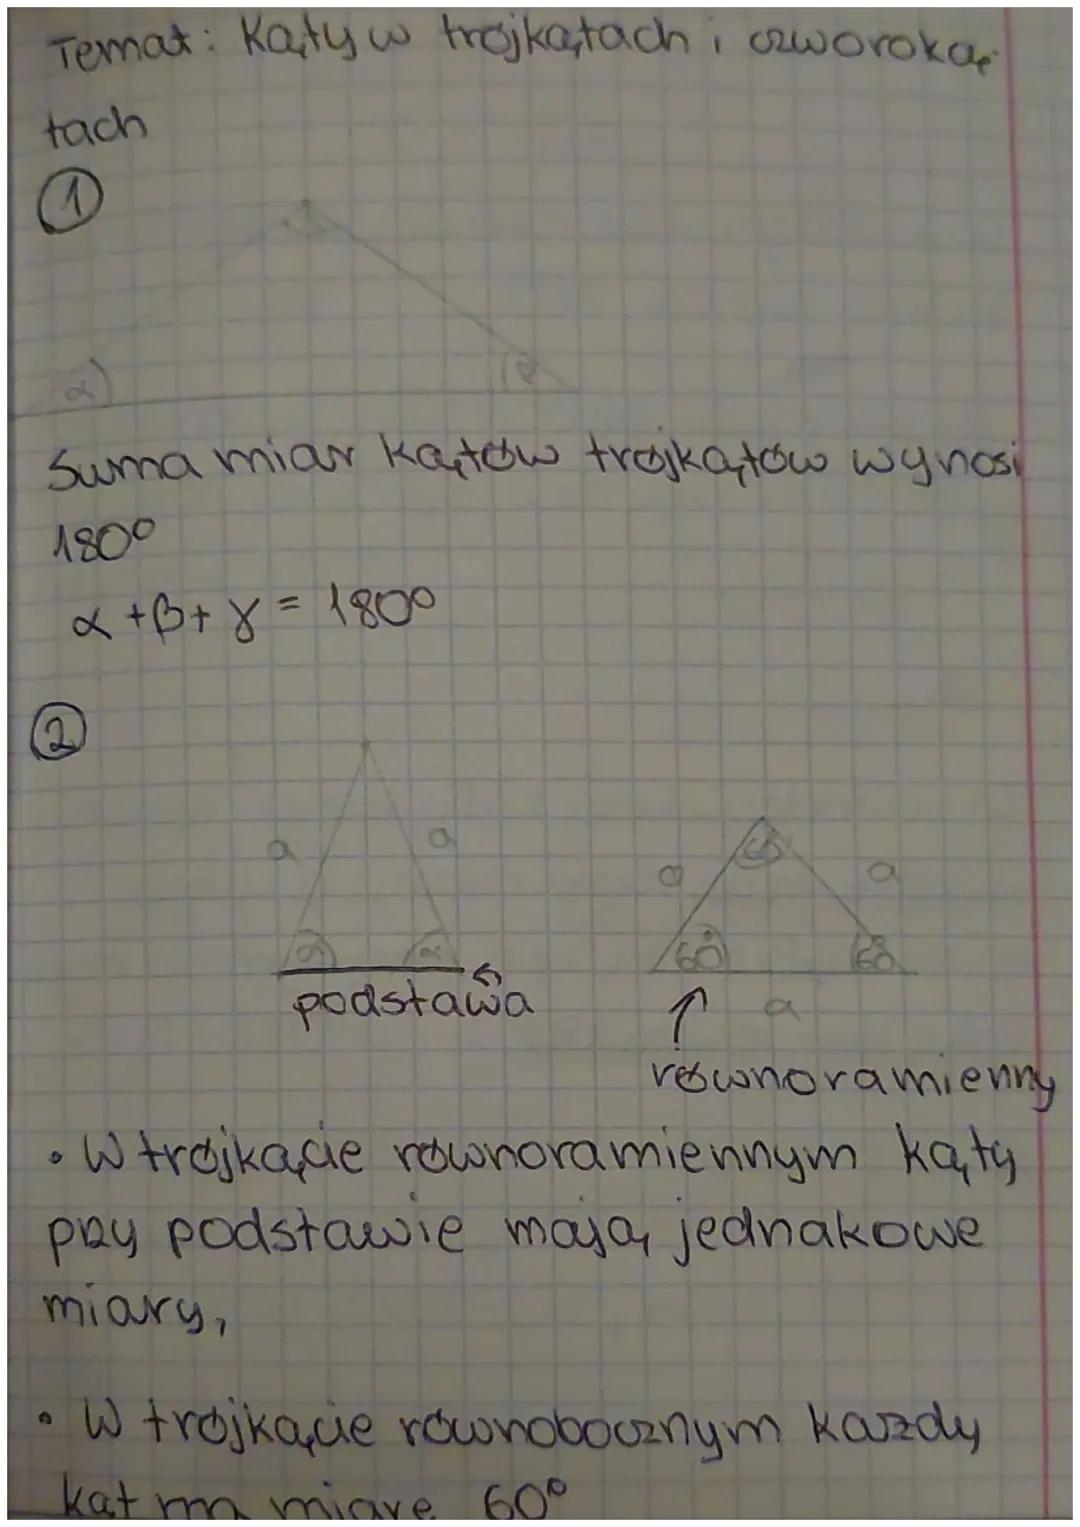 Temat: Kąty w trójkątach i czworoką-
tach
1
α
β
Suma miar kątów trójkątów wynosi
180°
α + β + γ = 180°
2
a a
α α
podstawa
60°
a a
60° 60°
a
równoramienny
• W trójkącie równoramiennym kąty
przy podstawie mają jednakowe
miary,
• W trójkącie równobocznym każdy
kąt ma miarę 60°